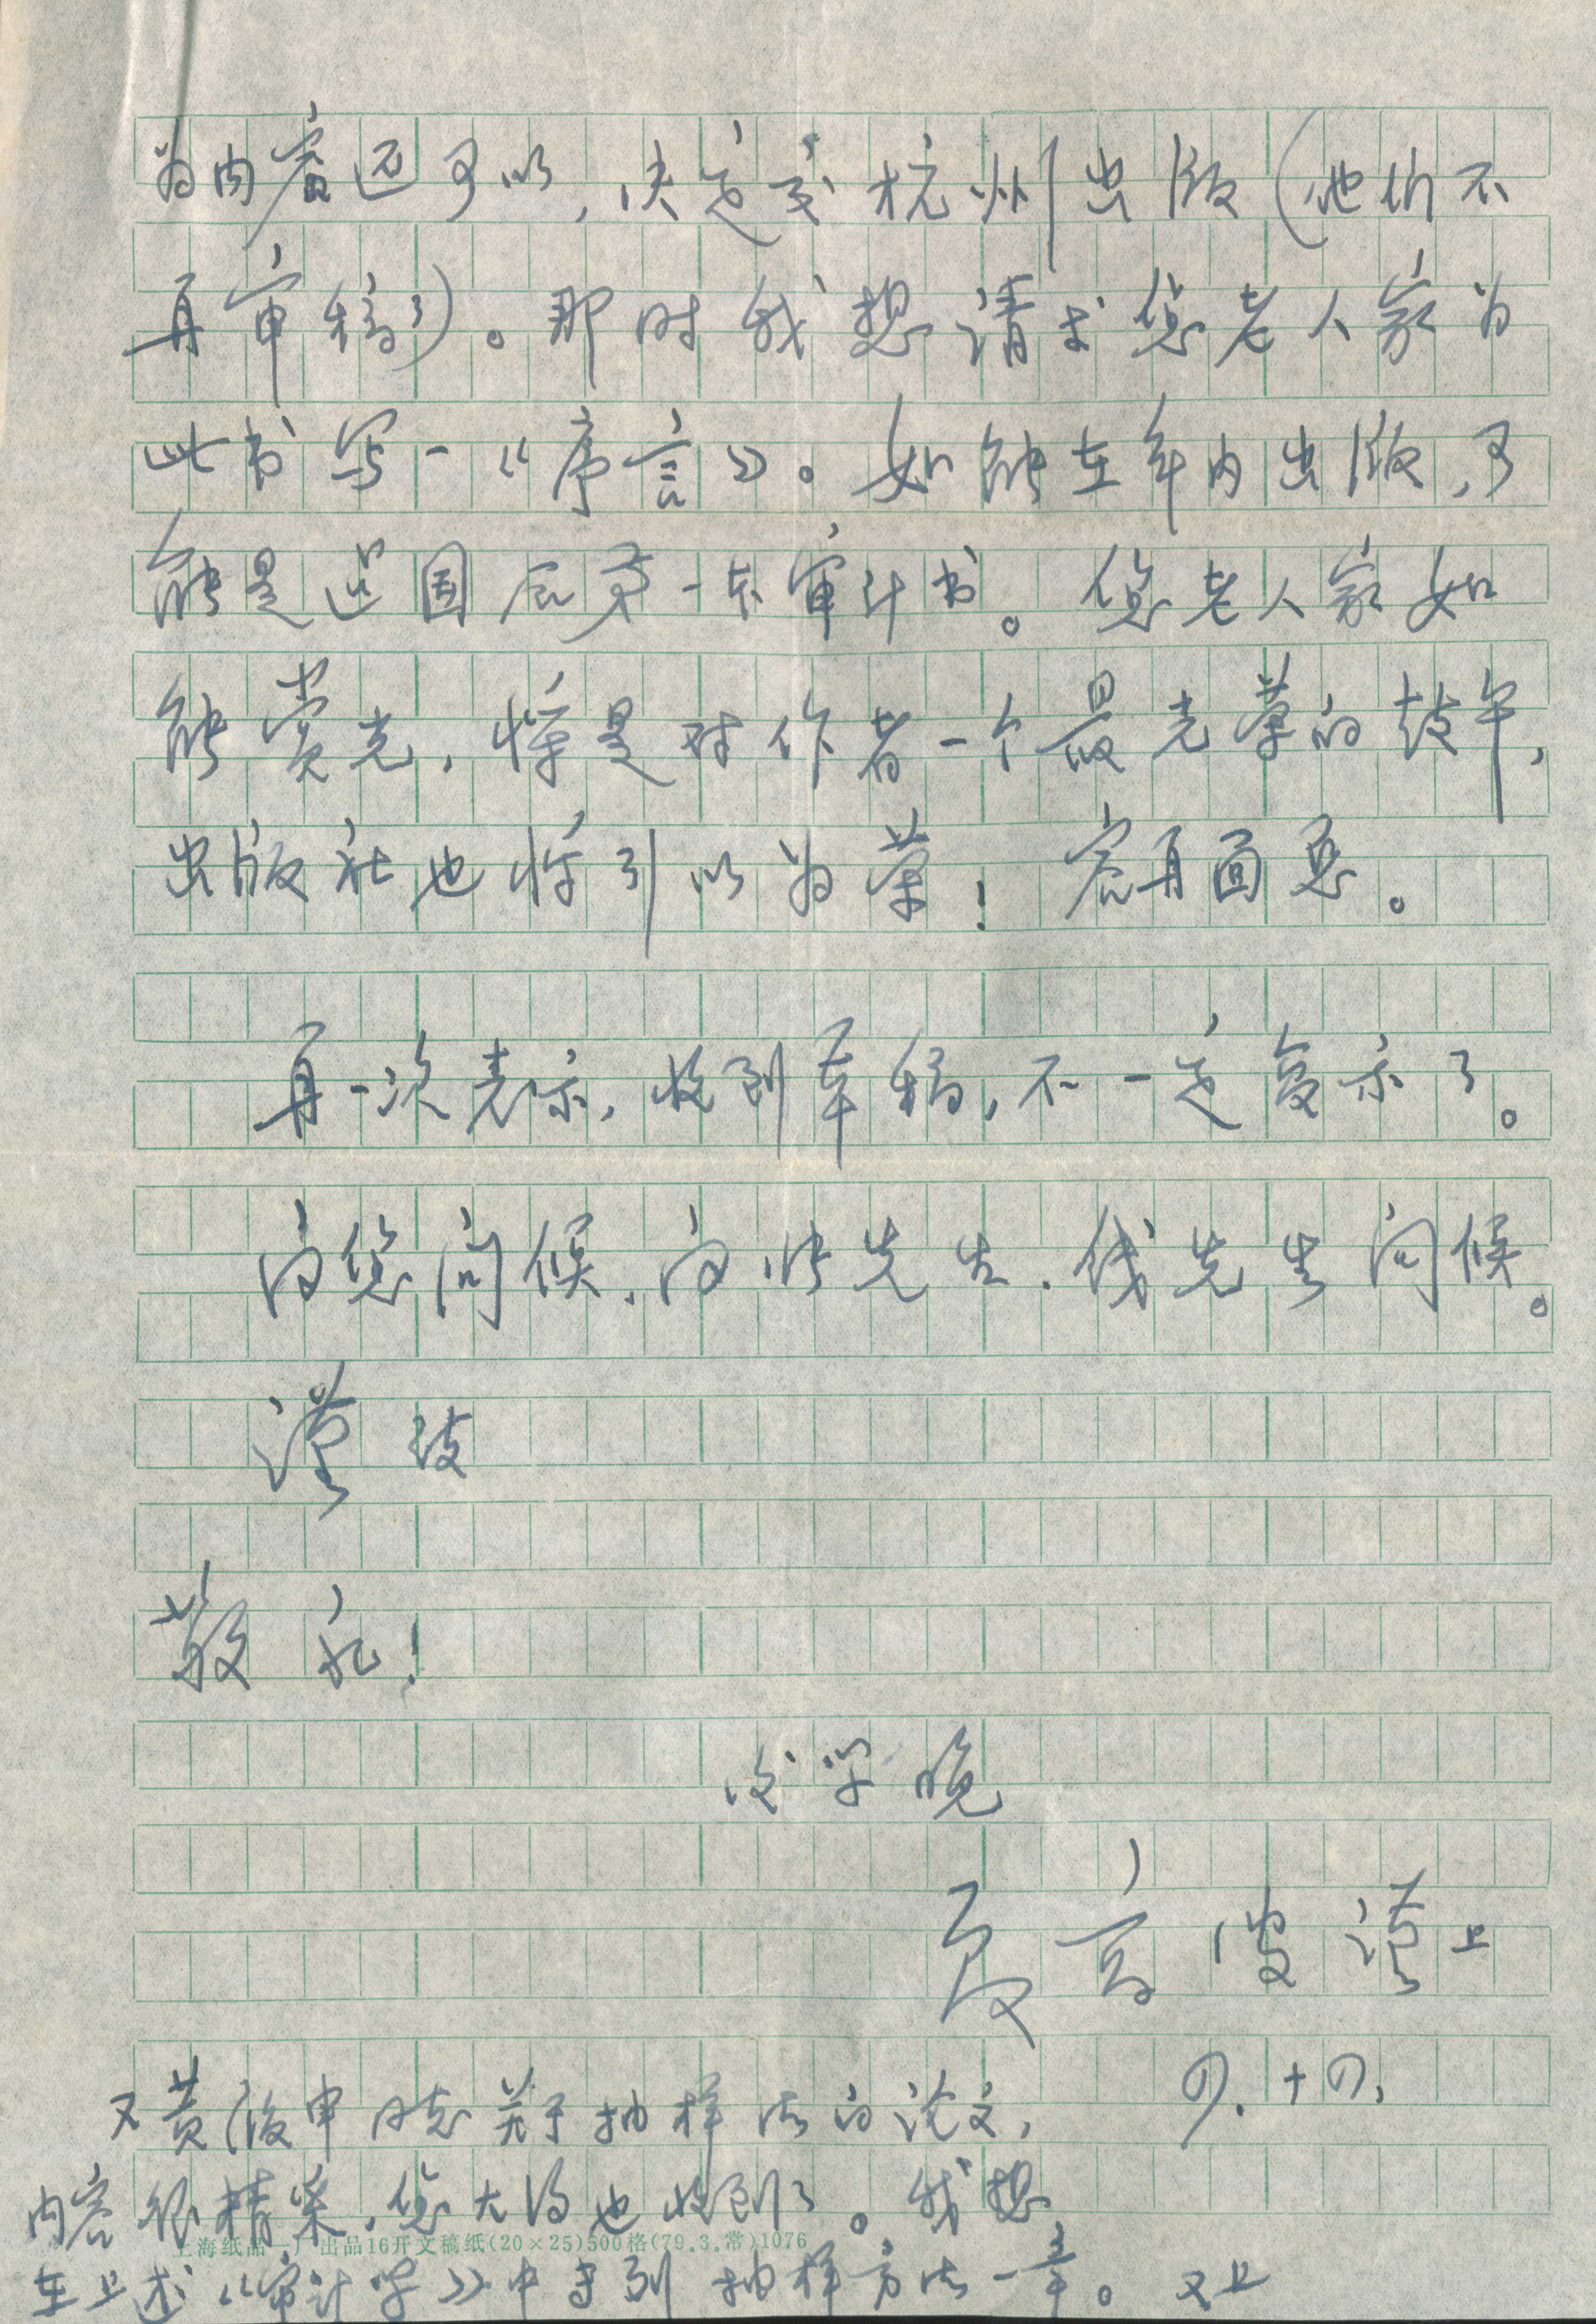 为内容还可以，决定或杭州出版（他们不
再审稿了）。那时我想请求您老人家为
此书写一《序言》。如能在年内出版，可
能是建国后第一本审计书。您老人家如
能赏光，将是对作者一个最光荣的鼓午，
出版社也将引以为荣！容再面恳。
再一次表示，收到草稿，不一定复示了。
向您问候，向 先生、钱先生问候。
谨致
敬礼！
后学晚
上
又黄 申同志关于抽样法的论文，
内容很精采，您大约也收到了。我想
上海纸品一厂出品16开文稿纸(20×25)500格(79.3.常)1076
在上述《审计学》中 到抽样方法一章。 又上